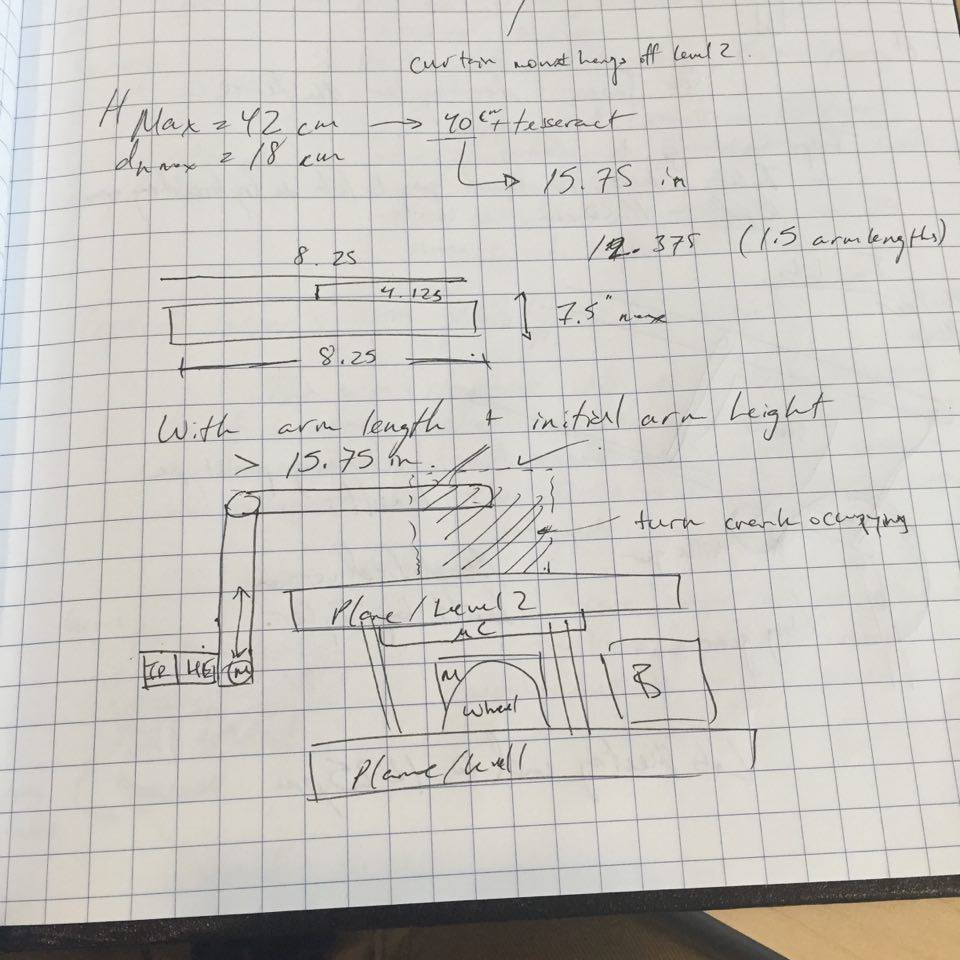 curtain mount hangs off level 2.
H Max = 42 cm → 40 cm + tesseract
dh max = 18 cm
→ 15.75 in
12.375 (1.5 arm lengths)
8.25
4.125
7.5" max
8.25
With arm length + initial arm height
> 15.75 in.
turn crank occupying
Plane/Level 2
μC
IR HE M
M
wheel
B
Plane/Level 1